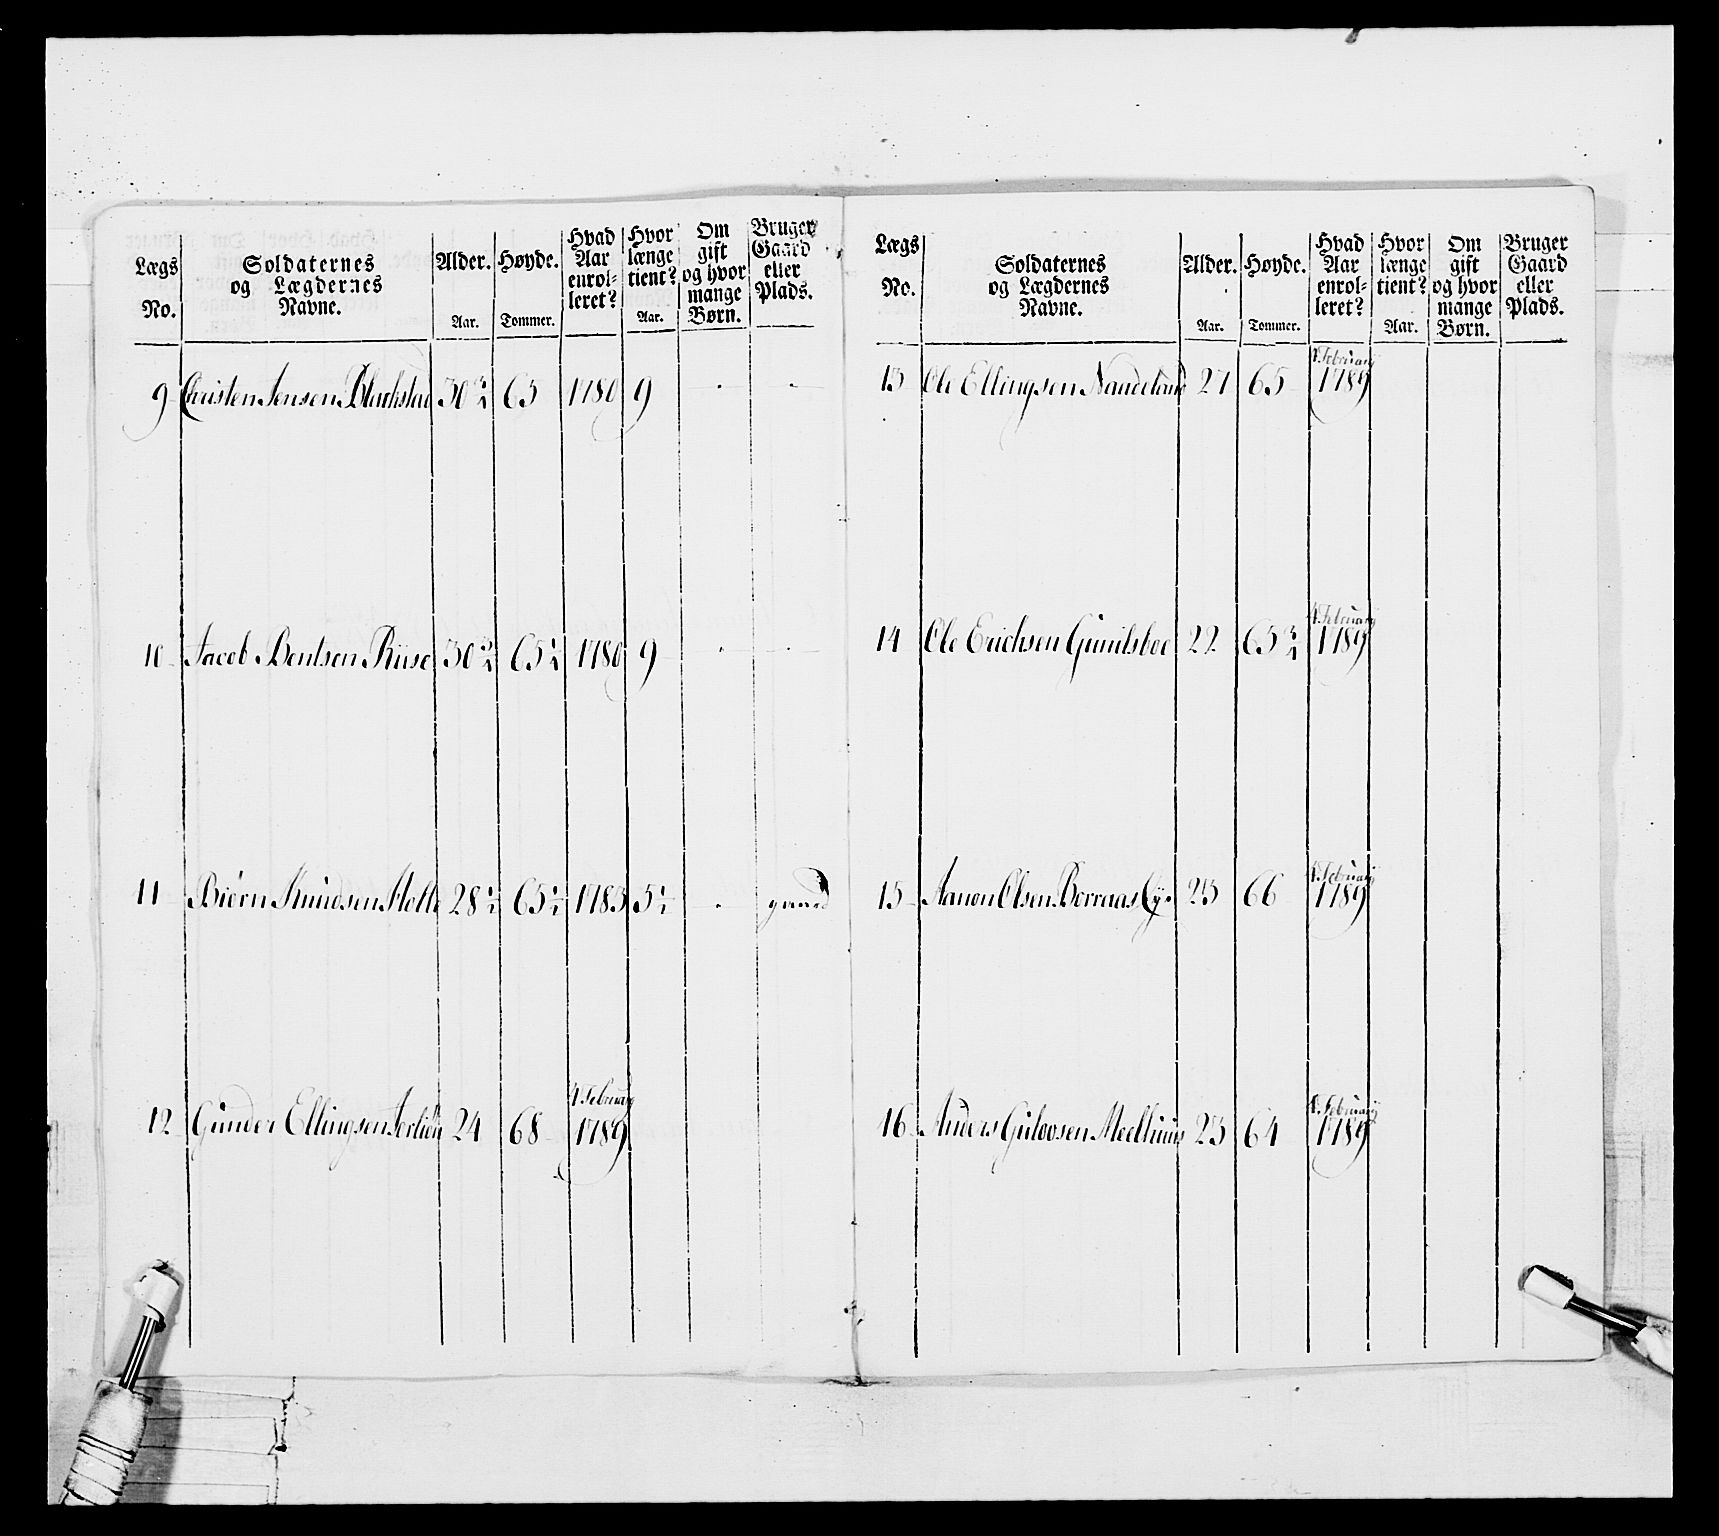 Lægs No. | Soldaternes og Lægdernes Navne. | Alder. Aar. | Høyde. Tommer. | Hvad Aar enrol-leret? | Hvor længe tient? Aar. | Om gift og hvor mange Børn. | Bruger Gaard eller Plads.
9 Christen Jensen Blachstad 30 3/4 65 1780 9 - -
10 Jacob Bentsen Riise 30 3/4 65 1/4 1780 9 - -
11 Biørn Knudsen Molle 28 1/2 65 1/2 1783 5 1/2 - gaard
4 Februarij
12 Gunder Ellingsen 24 68 1789
Lægs No. | Soldaternes og Lægdernes Navne. | Alder. Aar. | Høyde. Tommer. | Hvad Aar enrol-leret? | Hvor længe tient? Aar. | Om gift og hvor mange Børn. | Bruger Gaard eller Plads.
4 Februarij
13 Ole Ellingsen 27 65 1789
4 Februarij
14 Ole Erichsen 22 65 3/4 1789
4 Februarij
15 Aanon Olsen Borraas 23 66 1789
4 Februarij
16 Anders Gulovsen 23 64 1789